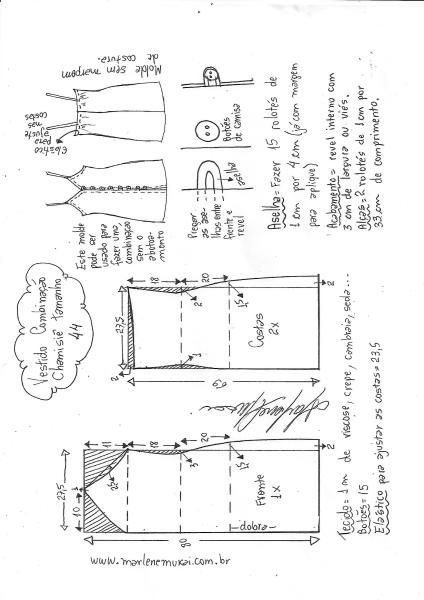 Vestido Combinação
Chamisiê tamanho
44
Este molde
pode ser
usado para
fazer uma
combinação
sem o
abotoa-
mento
Elástico
para
ajuste
nas
costas
Molde sem margem
de costura.
Pregar
as ase-
lhas entre
frente e
revel
aselha
Botões
de camisa
Aselha = Fazer 15 rolotês de
1 cm por 4 cm (já com margem
para aplique)
Acabamento = revel interno com
3 cm de largura ou viés.
Alças = 2 rolotês de 1 cm por
33 cm de comprimento.
27,5
10
11
18
20
2,5
3
1,5
2
80
Frente
1x
dobra
27,5
2
18
20
2
1
1,5
2
69
Costas
2x
Tecido = 1 m de viscose, crepe, cambraia, seda...
Botões = 15
Elástico para ajustar as costas = 23,5
www.marlenemukai.com.br